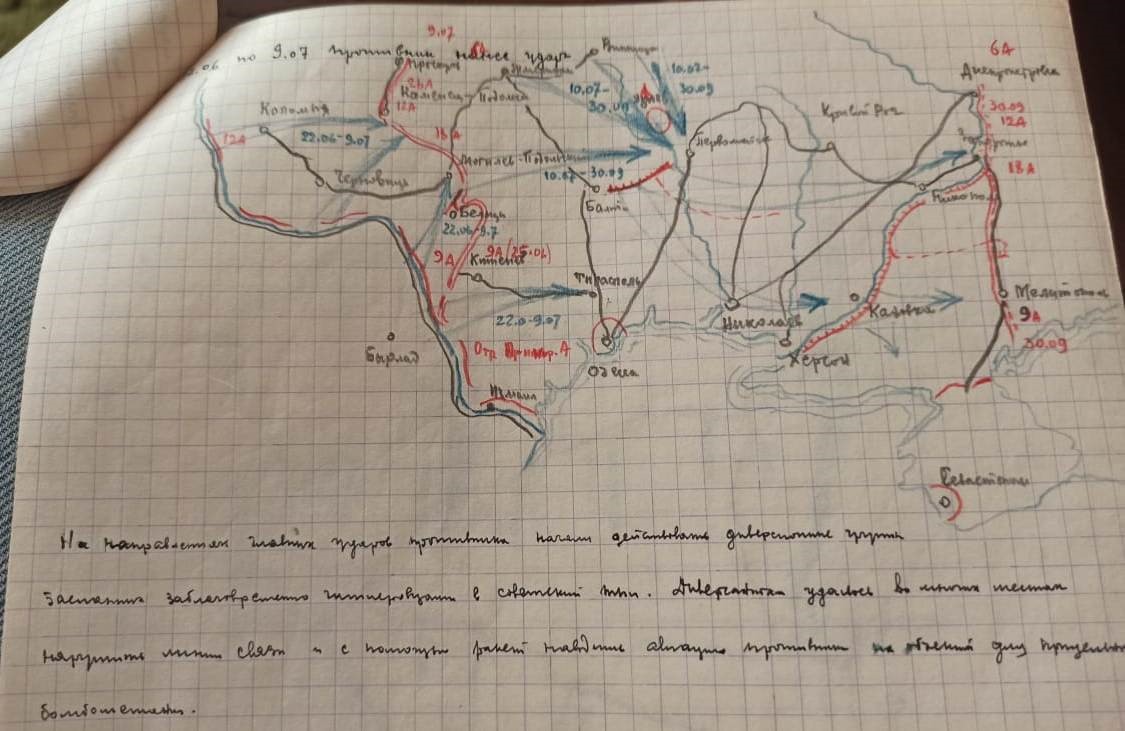 9.07
по 9.07 противник нанес удар
6А
Винница
Жмеринка
Днепропетровск
10.07-
30.09
10.07-
30.09
26А
Каменец-Подольск
12А
Коломыя
18А
Кривой Рог
30.09
12А
12А
22.06-9.07
Первомайск
Запорожье
Могилев-Подольский
18А
10.07-30.09
Черновицы
Балта
Никополь
Бельцы
22.06-9.7
9А
9А (25.06)
Кишенев
Тирасполь
Мелитополь
22.0-9.07
Николаев
Каховка
9А
30.09
Бырлад
Отд Примор. А
Одесса
Херсон
Измаил
Севастополь
На направлениях главных ударов противника начали действовать диверсионные группы
засланных заблаговременно гитлеровцами в советский тыл. Диверсантам удалось во многих местах
нарушить линии связи и с помощью ракет наводить авиацию противника на объекты для прицельн
бомбометания.